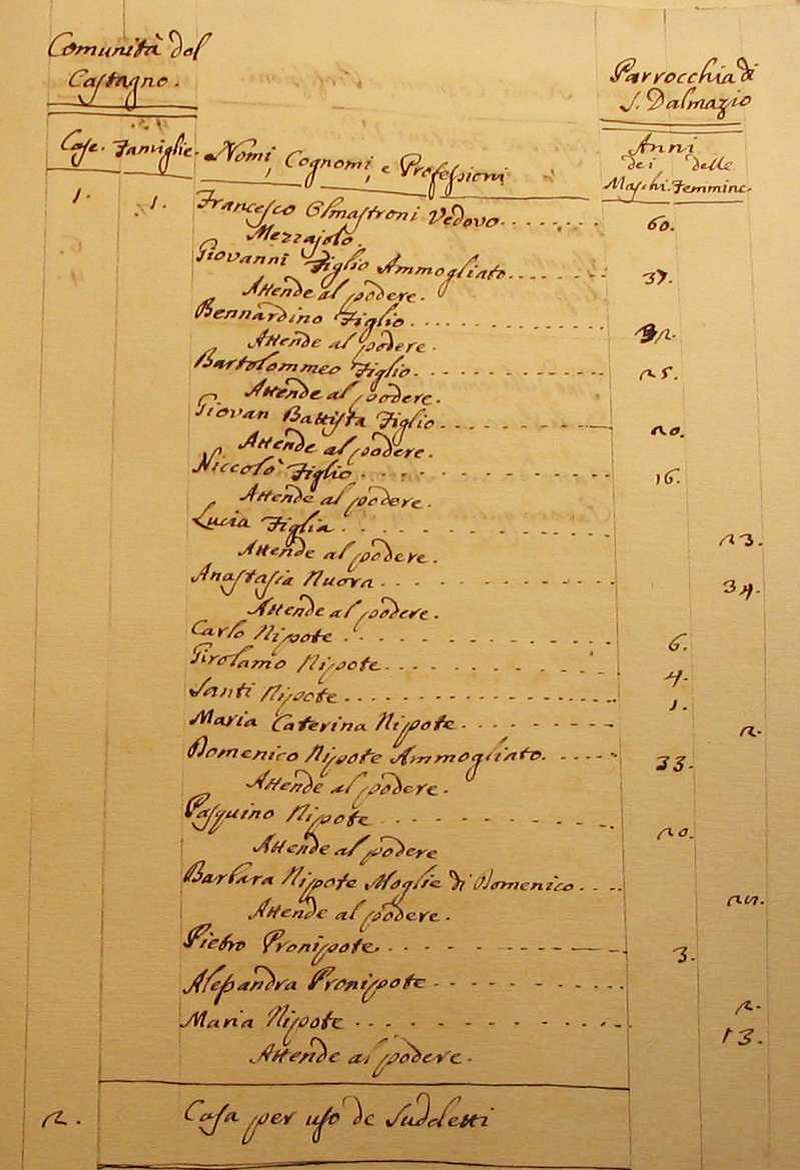 Comunità del
Castagno.
Parrocchia di
S. Dalmazio
Case. Famiglie. Nomi, Cognomi, e Professioni
Anni
dei delle
Maschi. Femmine.
1. 1. Francesco Olmastroni Vedovo 60.
Mezzajolo.
Giovanni Figlio Ammogliato 37.
Attende al podere.
Bernardino Figlio 32.
Attende al podere.
Bartolommeo Figlio 25.
Attende al podere.
Giovan Battista Figlio 20.
Attende al podere.
Niccolò Figlio 16.
Attende al podere.
Lucia Figlia 23.
Attende al podere.
Anastasia Nuora 34.
Attende al podere.
Carlo Nipote 6.
Girolamo Nipote 4.
Santi Nipote 1.
Maria Caterina Nipote 2.
Domenico Nipote Ammogliato 33.
Attende al podere.
Pasquino Nipote 20.
Attende al podere
Barbara Nipote Moglie di Domenico
Attende al podere.
Pietro Pronipote 3.
Alessandra Pronipote 2.
Maria Nipote 13.
Attende al podere.
2. Casa per uso de Suddetti